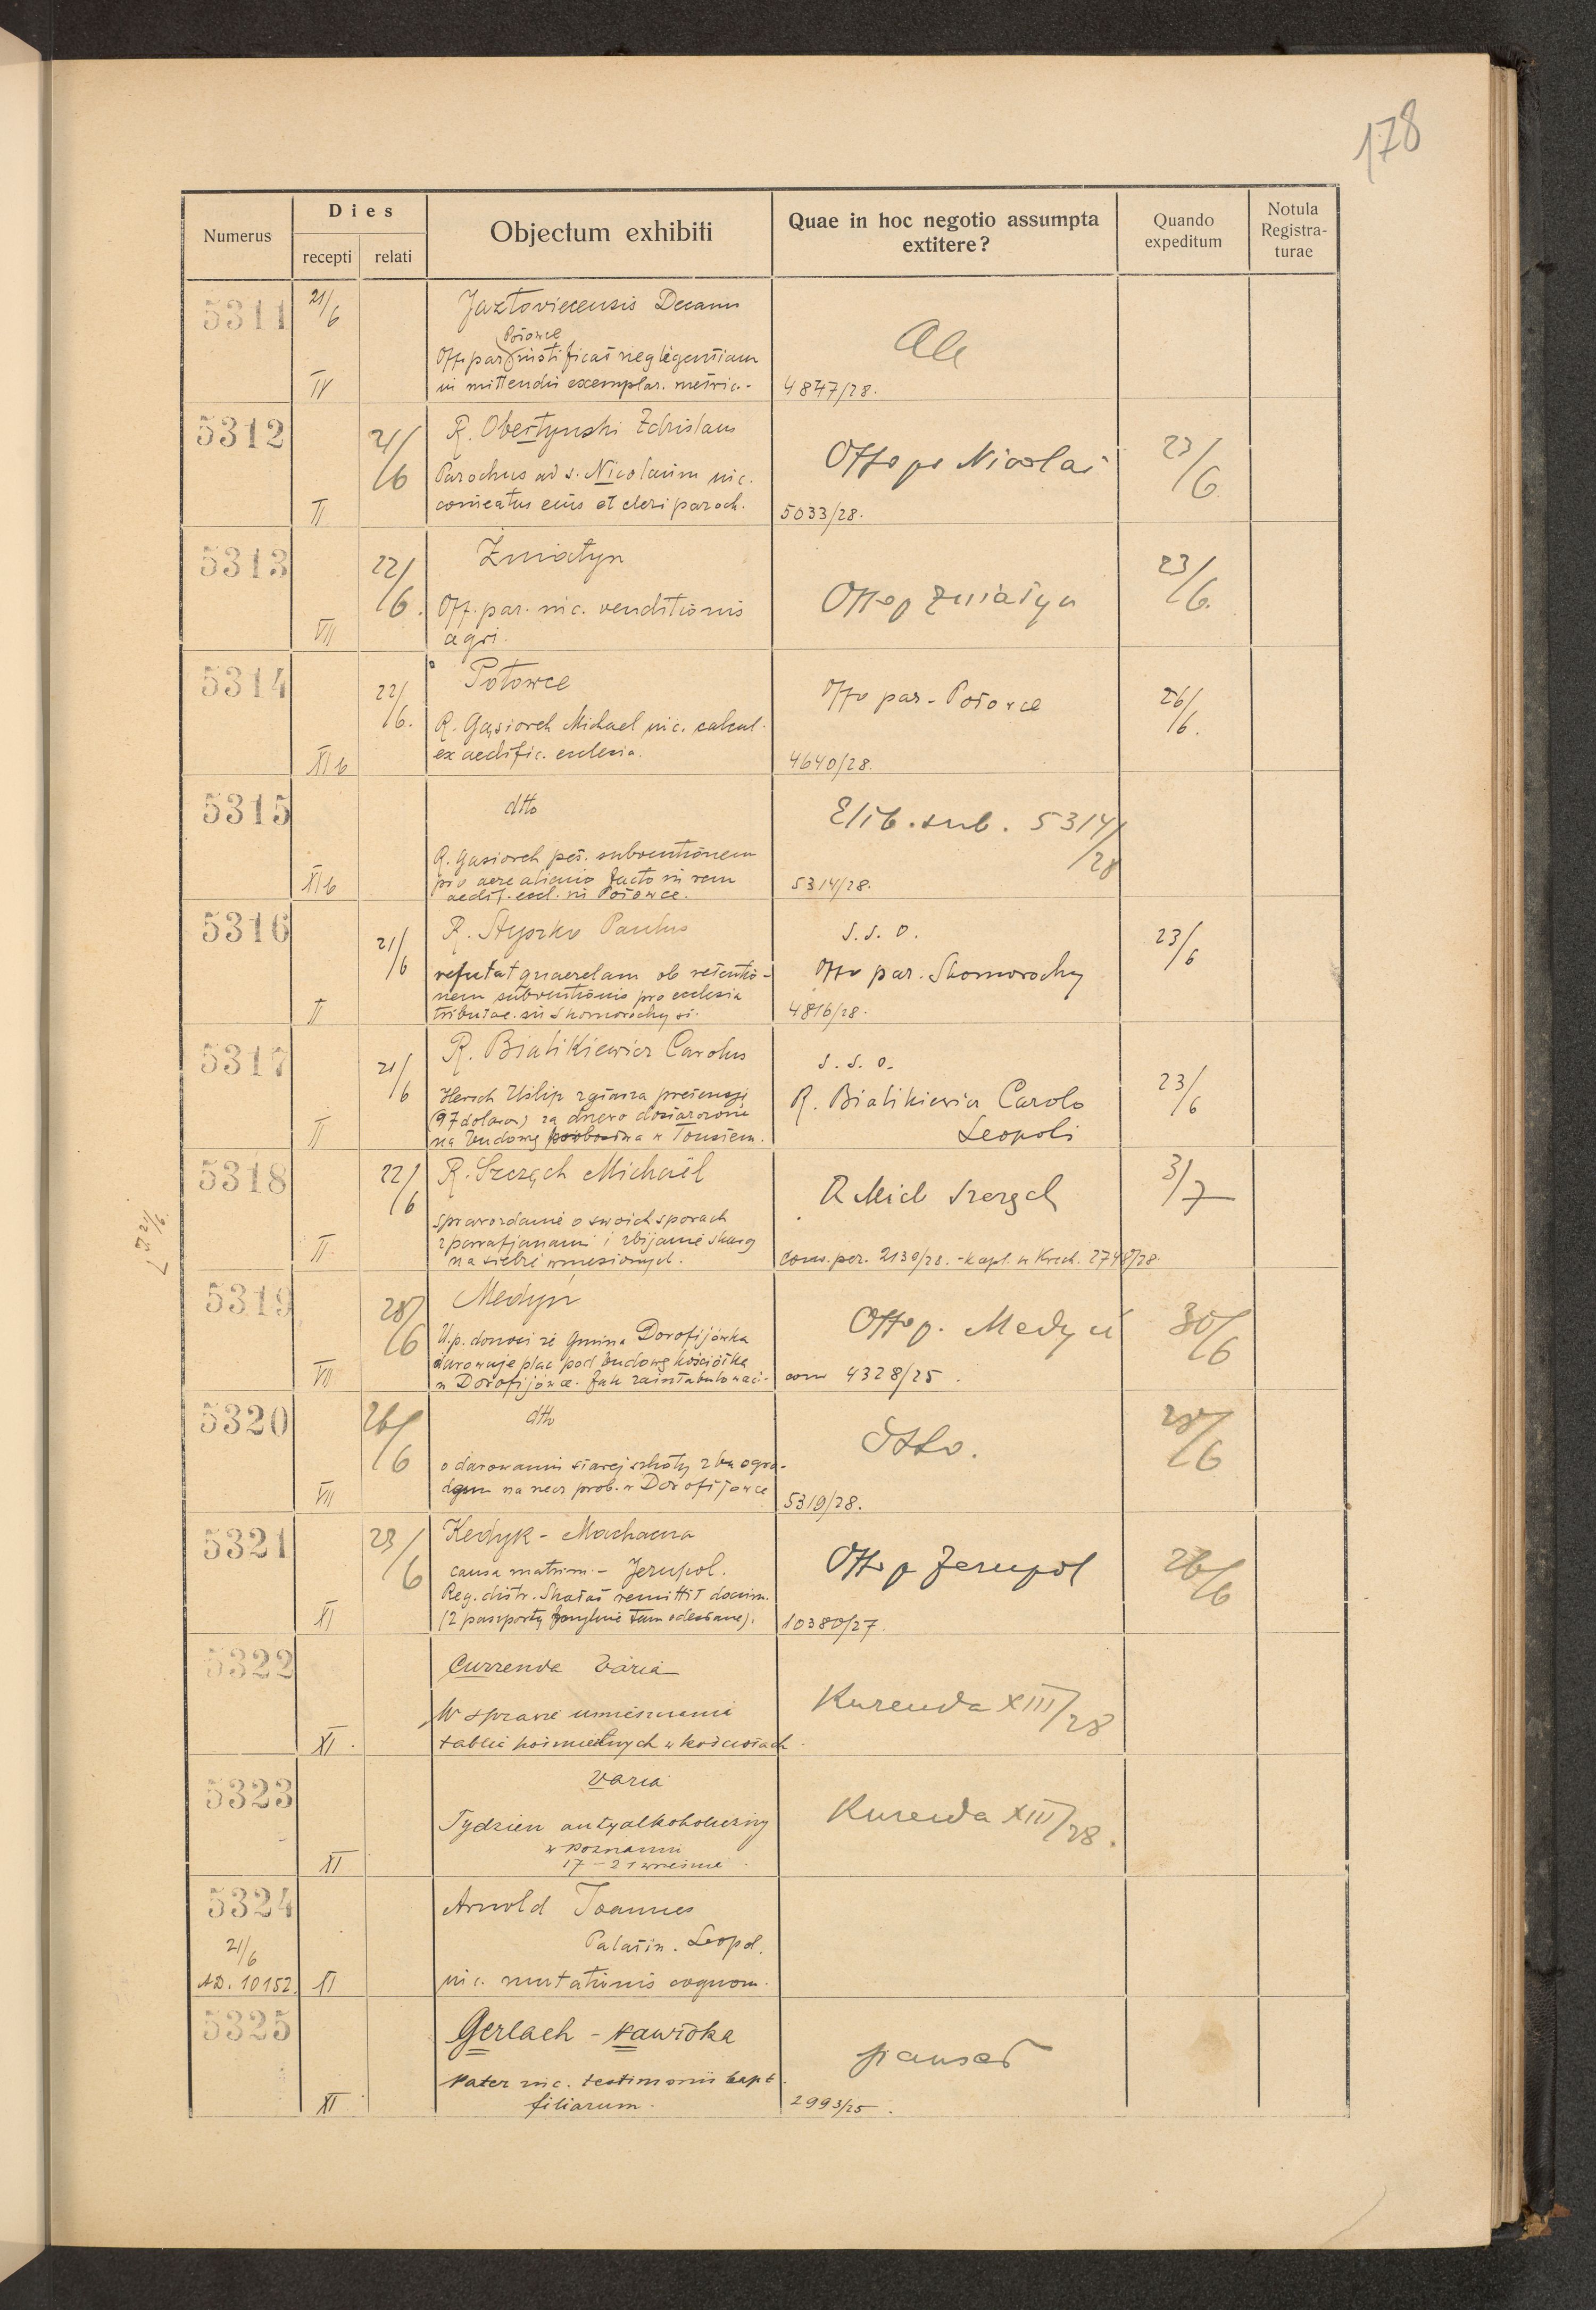 178
Numerus
Dies
recepti
relati
Objectum exhibiti
Quae in hoc negotio assumpta extitere?
Quando expeditum
Notula Registra-turae
5311
21/6
IV
Jazłoviecensis Decanus
Połowce
Offo par. justificat neglegentiam
in mittendis exemplar. metric.-
4847/28.
5312
21/6
II
R. Obertyński Zdislaus
Parochus ad s. Nicolaum nic.
comeatus eius et cleri paroch.
Offo pa Nicolai
5033/28.
23/6
5313
22/6.
VII
Żniatyn
Off. par. nic. venditionis
agri.
Offo p Żniatyn
23/6.
5314
22/6.
XI b
Połowce
R. Gąsiorek Michael nic. calcul.
ex aedific. ecclesia.
Offo par. Połowce
4640/28.
26/6.
5315
XI b
dtto
R. Gąsiorek pet. subventionem
pro aere alieno facto in rem
aedif. eccl. in Połowce.
Elib. sub. 5314/28
5314/28.
5316
21/6
II
R. Styrzko Paulus
refutat quaerelam ob retentio-
nem subventionis pro ecclesia
tributae in Skomorochy st.
s. s. o.
Offo par. Skomorochy
4816/28.
23/6
5317
21/6
II
R. Bialikiewicz Carolus
Hersch Uslip zgłasza pretensję
(97 dolarów) za drzewo dostarczone
na budowę probostwa w Toustem.
s. s. o.
R. Bialikiewicz Carolo
Leopoli
23/6
5318
22/6
II
R. Szczęch Michaël
sprawozdanie o swoich sporach
z parafjanami i zbijanie skarg
na siebie wniesionych.
R Mich Szczęch
com. per. 2130/28. - kapl. w Krech. 2748/28.
3/7
5319
28/6
VII
Medyń
U.p. donosi że Gmina Dorofijówka
darowuje plac pod budowę kościółka
w Dorofijówce. Jak zaintabulować.-
Offo p. Medyń
com 4328/25.
30/6
5320
26/6
VII
dtto
o darowaniu starej szkoły z
na rzecz prob. w Dorofijówce
dtto.
5319/28.
28/6
5321
23/6
XI
Kedyk - Machacza
causa matrim. - Jezupol.
Reg. distr. Skałat remittit docum.
(2 paszporty mylnie tam odesłane).
Offo p Jezupol
10380/27.
26/6
5322
XI.
Currenda Varia
W sprawie umieszczania
tablic pośmiertnych w kościołach.
Kurenda XIII/28
5323
XI
Varia
Tydzien antyalkoholiczny
w Poznaniu
17 - 21 wrzesnia
Kurenda XIII/28.
5324
21/6
AD. 10152.
XI
Arnold Joannes
Palatin. Leopol.
nic. mutationis cognom.
5325
XI
Gerlach - Kawrdka
Pater nic. testimonii bapt.
filiarum.
2993/25.